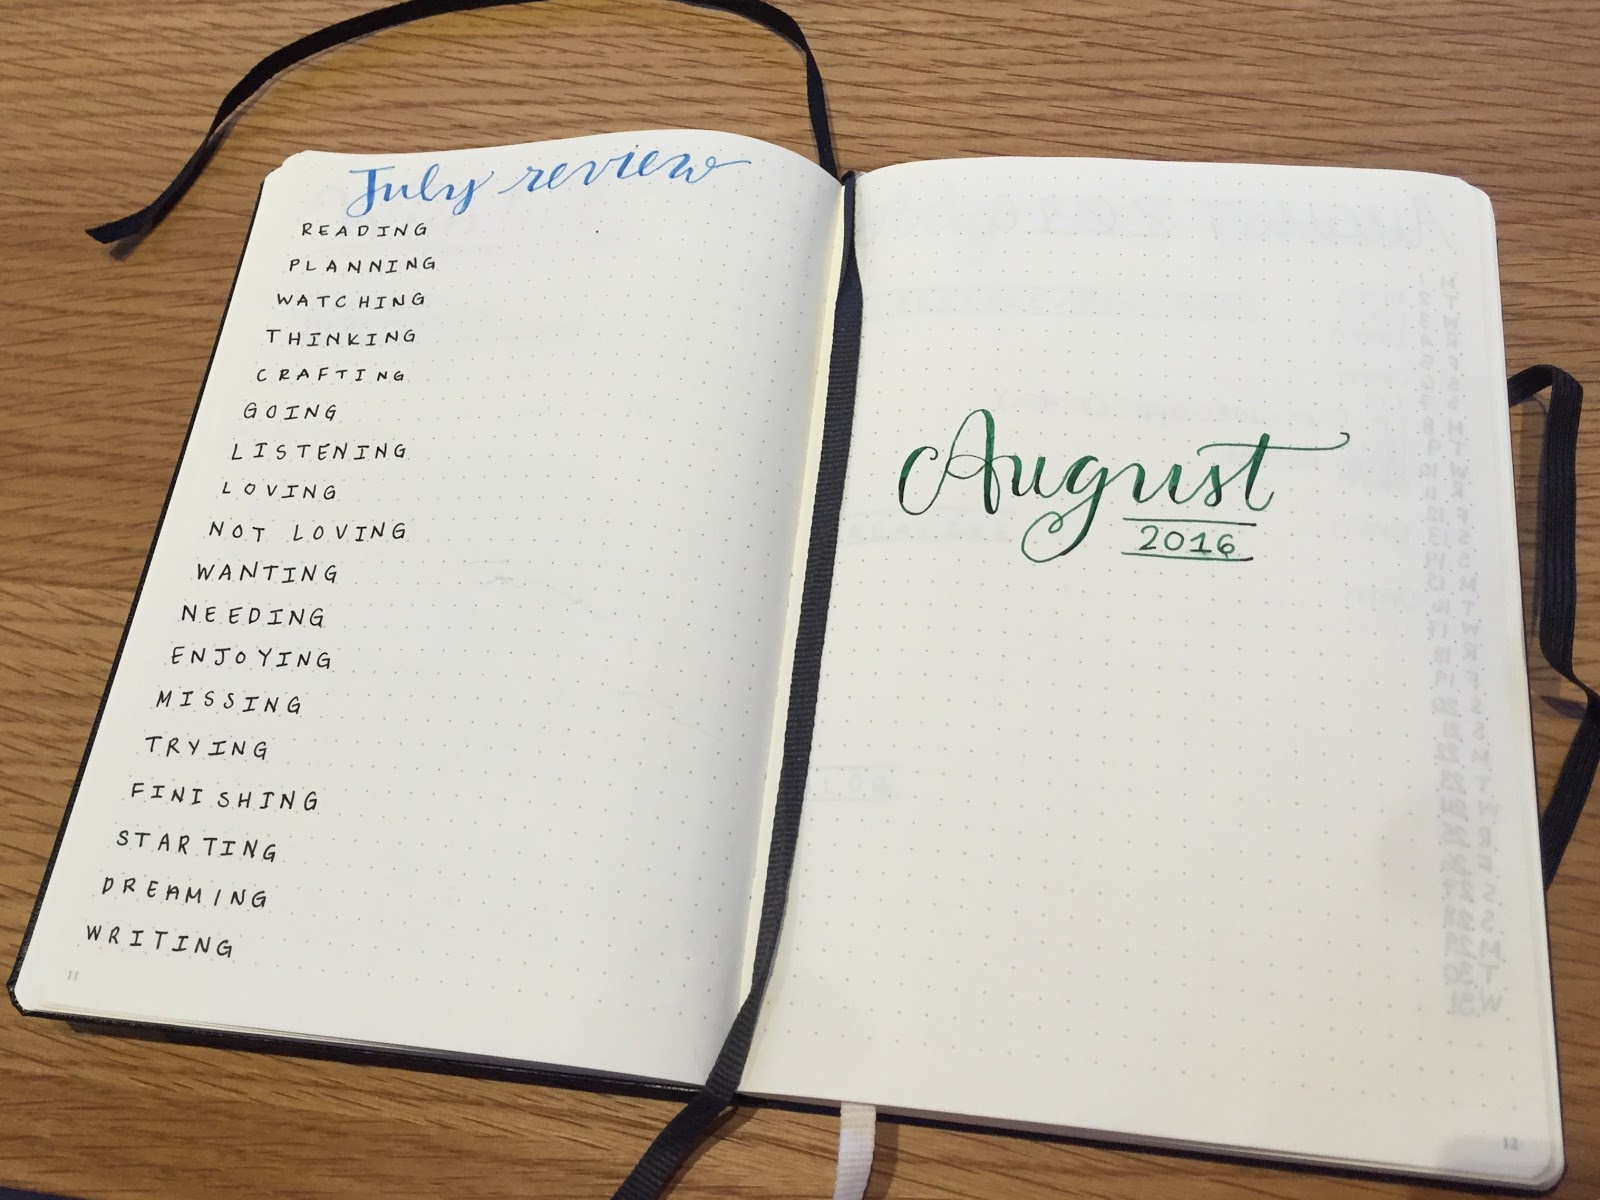 July review
READING
PLANNING
WATCHING
THINKING
CRAFTING
GOING
LISTENING
LOVING
NOT LOVING
WANTING
NEEDING
ENJOYING
MISSING
TRYING
FINISHING
STARTING
DREAMING
WRITING
11
August
2016
12